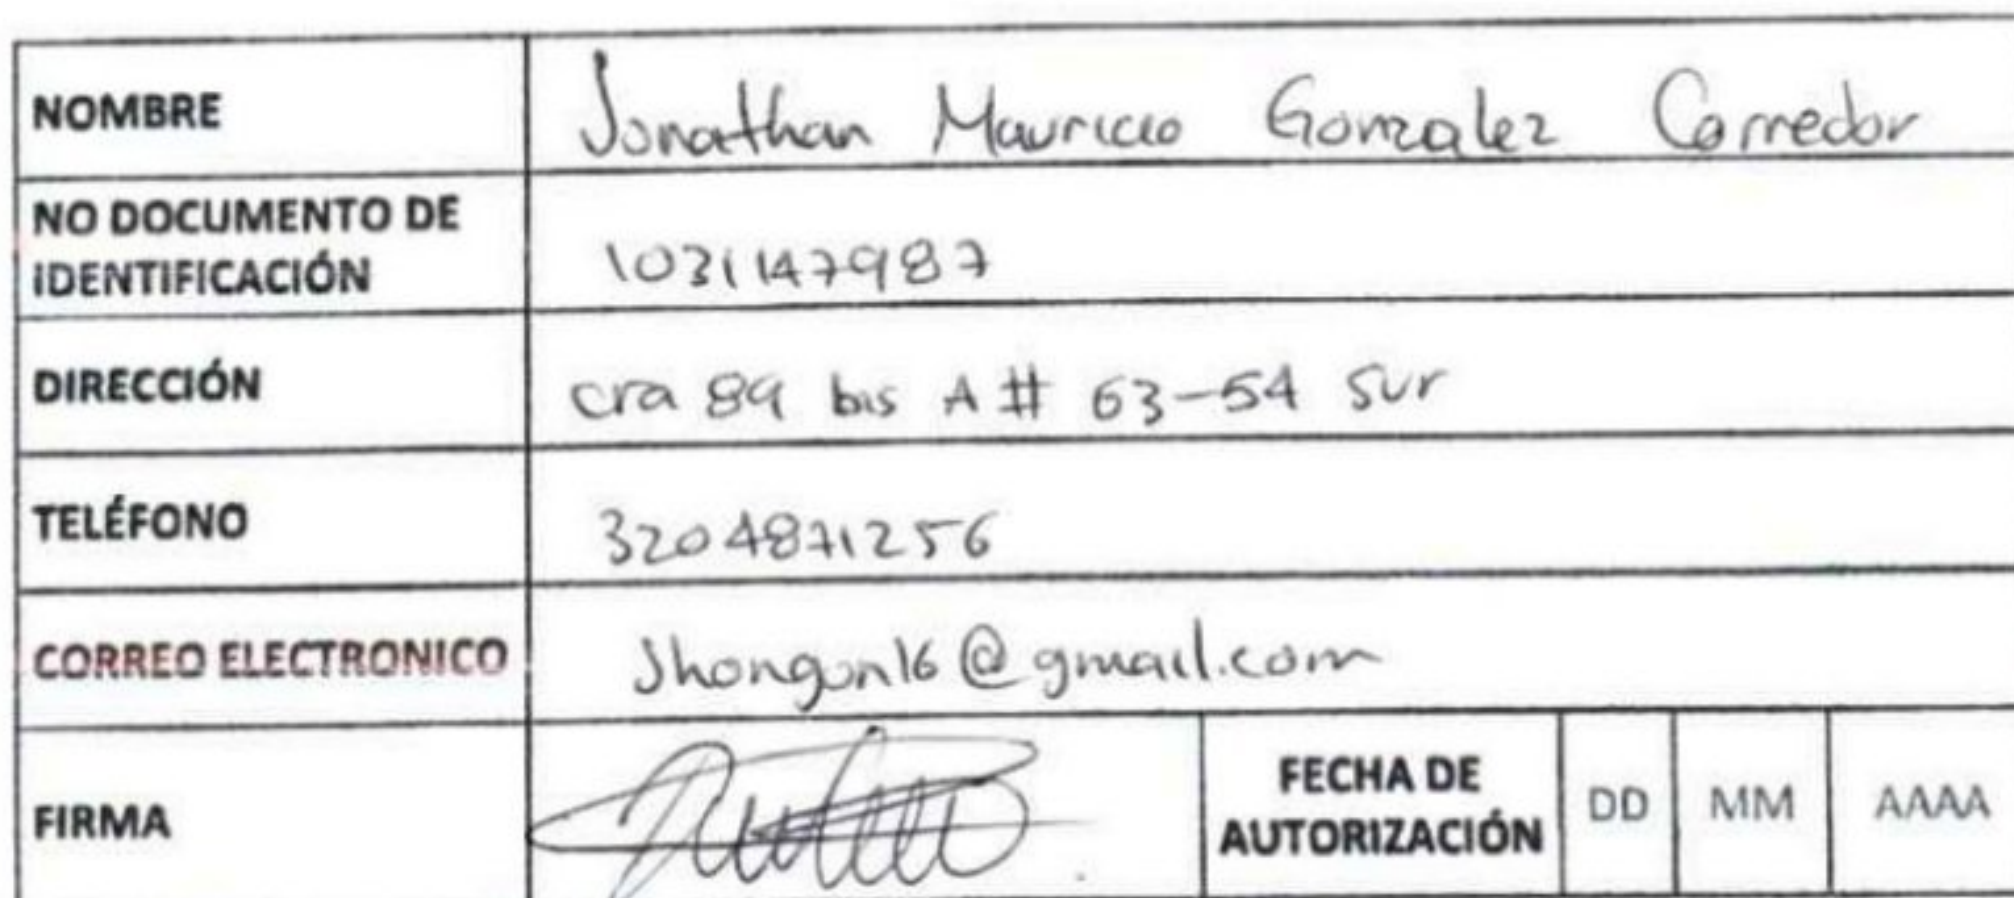 NOMBRE Jonathan Mauricio Gonzalez Corredor
NO DOCUMENTO DE
IDENTIFICACIÓN 1031147987
DIRECCIÓN cra 89 bis A # 63-54 sur
TELÉFONO 3204871256
CORREO ELECTRONICO Jhongon16@gmail.com
FIRMA FECHA DE AUTORIZACIÓN DD MM AAAA